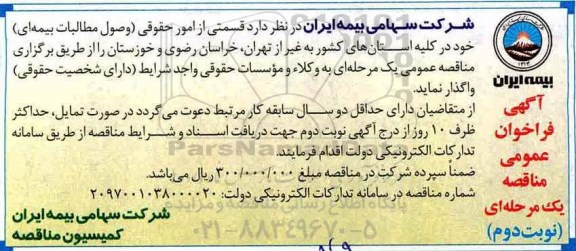 بیمه ایران
آگهی
فراخوان
عمومی
مناقصه
یک مرحله‌ای
(نوبت دوم)
شرکت سهامی بیمه ایران در نظر دارد قسمتی از امور حقوقی (وصول مطالبات بیمه‌ای)
خود در کلیه استان‌های کشور به غیر از تهران، خراسان رضوی و خوزستان را از طریق برگزاری
مناقصه عمومی یک مرحله‌ای به وکلاء و مؤسسات حقوقی واجد شرایط (دارای شخصیت حقوقی)
واگذار نماید.
از متقاضیان دارای حداقل دو سال سابقه کار مرتبط دعوت می‌گردد در صورت تمایل، حداکثر
ظرف ۱۰ روز از درج آگهی نوبت دوم جهت دریافت اسناد و شرایط مناقصه از طریق سامانه
تدارکات الکترونیکی دولت اقدام فرمایند.
ضمناً سپرده شرکت در مناقصه مبلغ ۳۰۰/۰۰۰/۰۰۰ ریال می‌باشد.
شماره مناقصه در سامانه تدارکات الکترونیکی دولت: ۲۰۹۷۰۰۱۰۳۸۰۰۰۰۲۰
شرکت سهامی بیمه ایران
کمیسیون مناقصه
ParsNamadData
۰۲۱-۸۸۳۴۹۶۷۰-۵